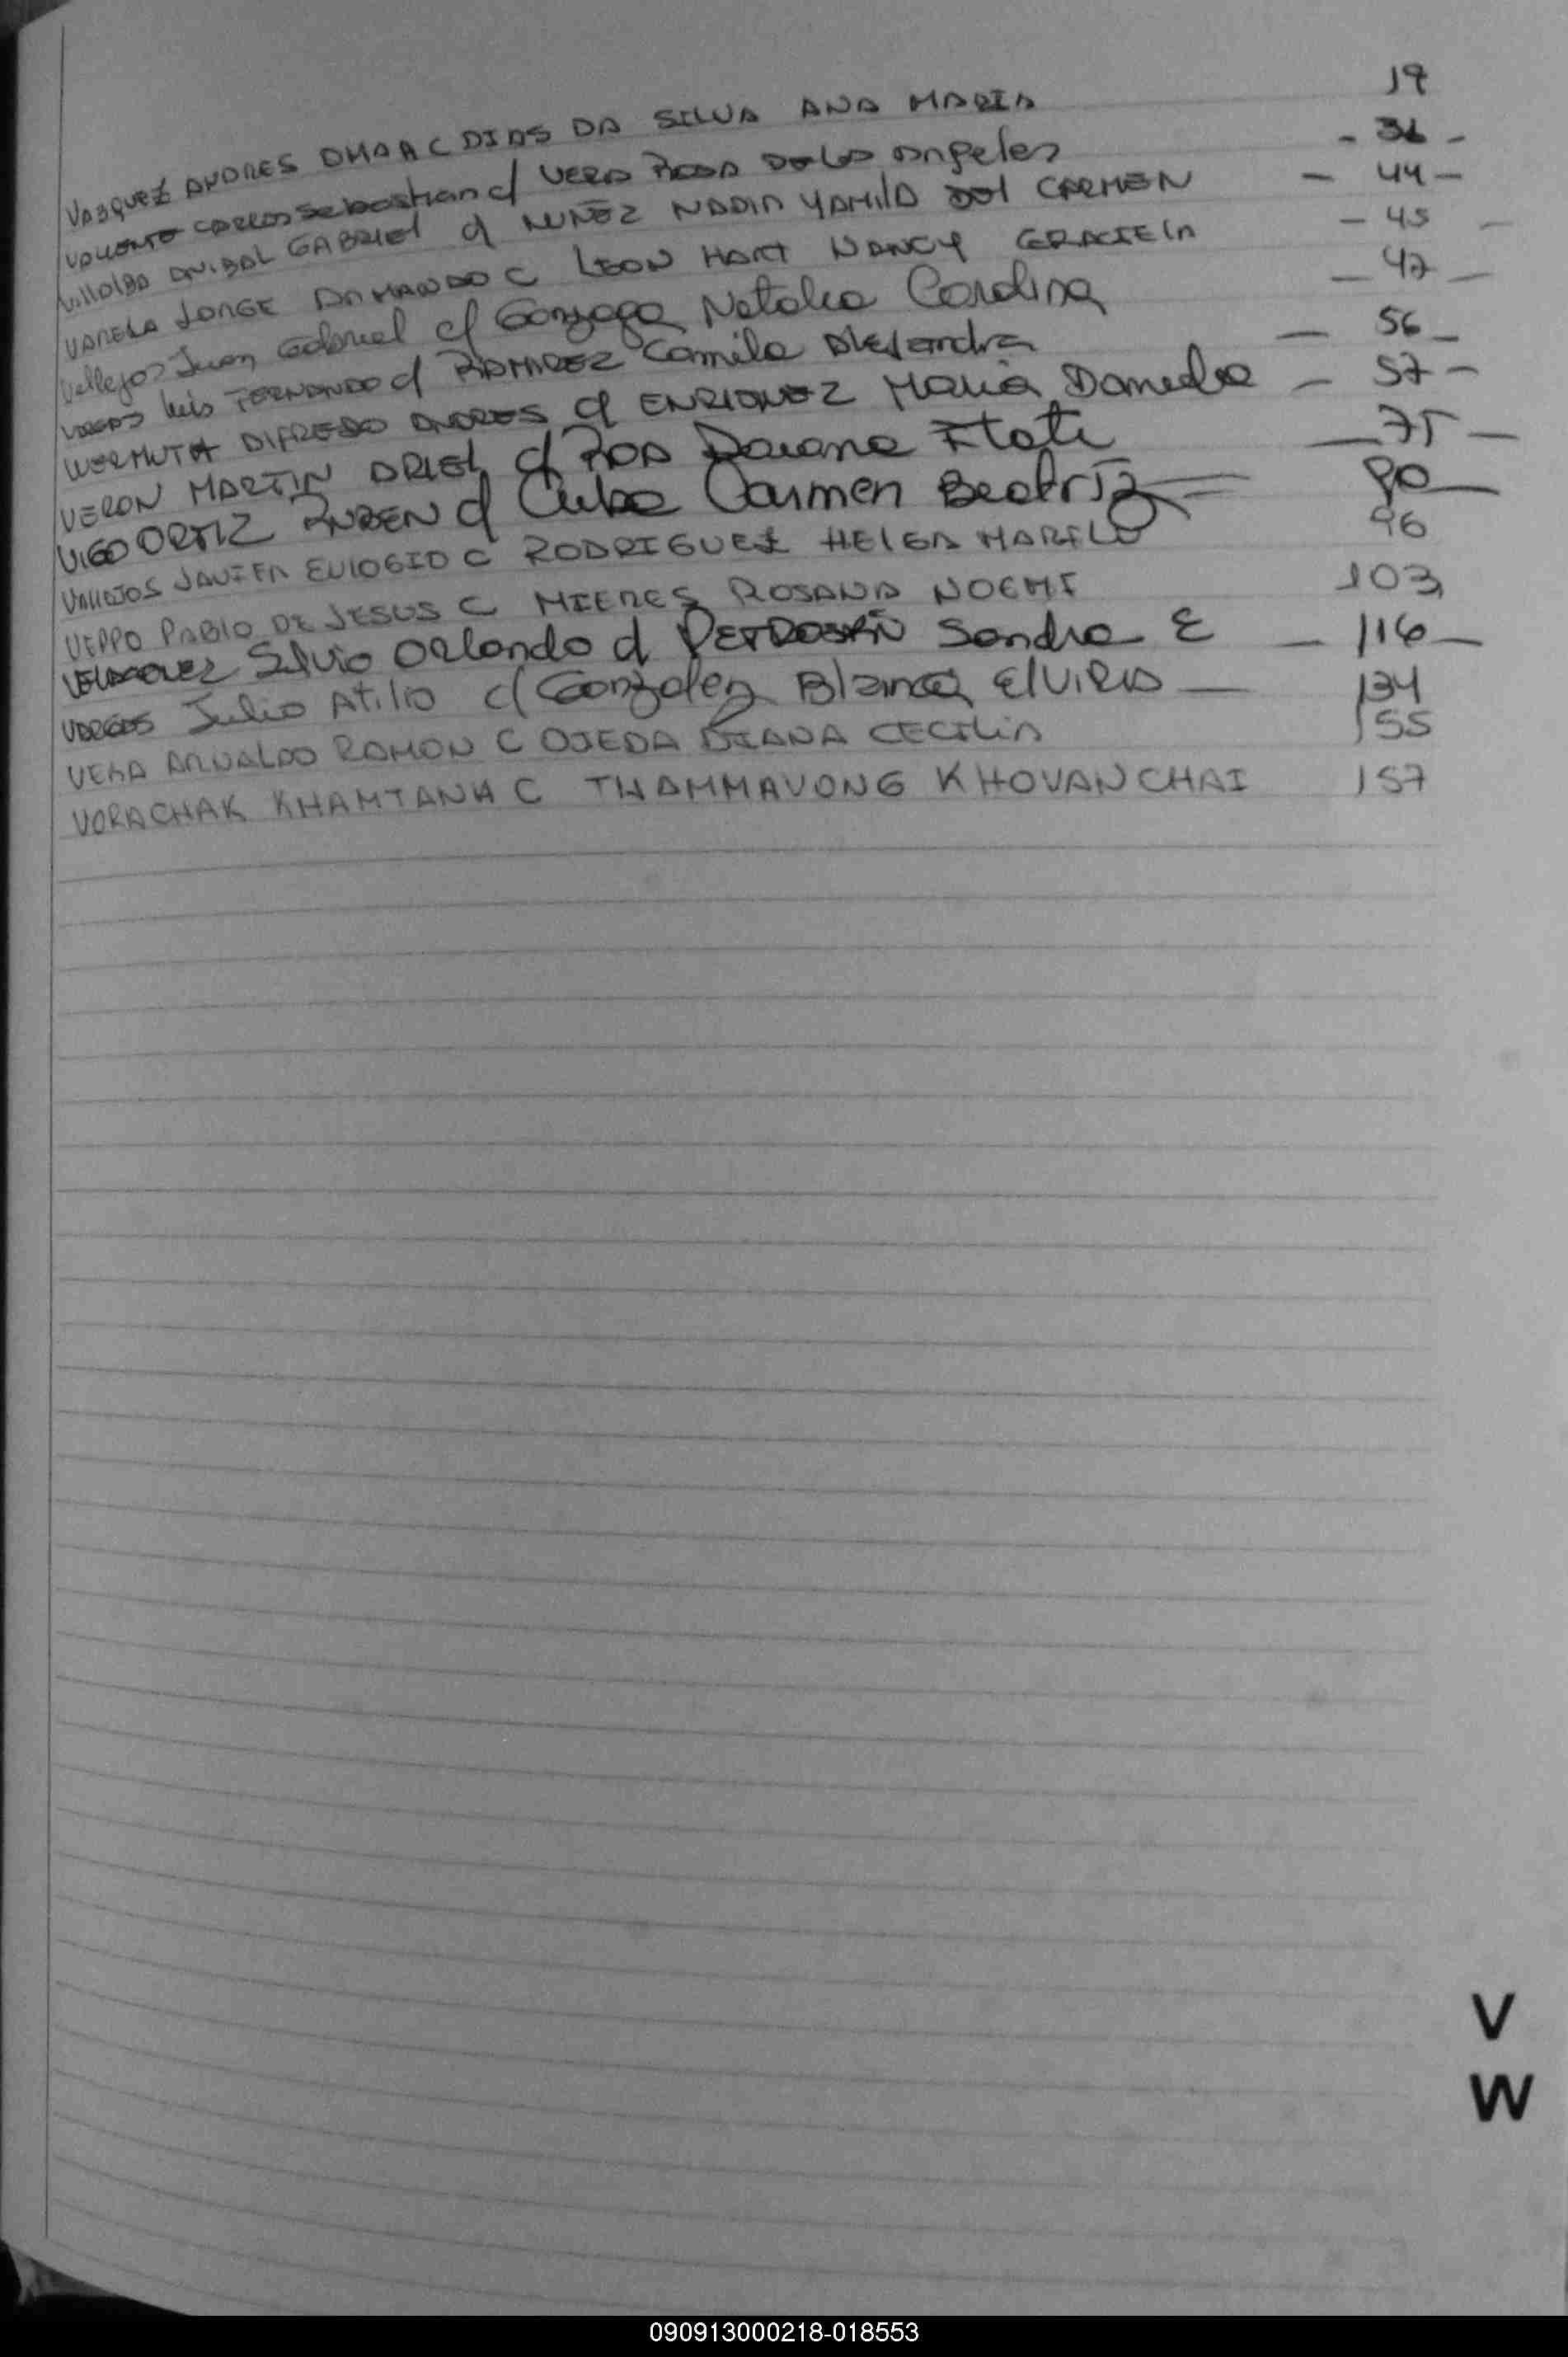 VAZQUEZ ANDRES OMAR C DIAS DA SILVA ANA MARIA 19
VALLENTE CARLOS Sebastian c/ VERA ROSA De Los Angeles - 36 -
Villalba ANIBAL GABRIEL c/ NUÑEZ NADIA YAMILA DEL CARMEN - 44 -
VARELA JORGE ARMANDO C LEON HART NANCY GRACIELA - 45 -
Vallejos Juan Gabriel c/ Gonzaga Natalia Carolina - 47 -
VARGAS Luis FERNANDO c/ RAMIREZ Camila Alejandra - 56 -
WERMUTH ALFREDO ANDRES c/ ENRIQUEZ Maria Daniela - 57 -
VERON MARTIN ARIEL c/ ROA Daiana Itati - 75 -
VIGO ORTIZ RUBEN c/ Carmen Beatriz 80 -
VALLEJOS JAVIER EULOGIO C RODRIGUEZ HELGA 96
VEPPO PABLO DE JESUS C MIERES ROSANA NOEMI 103
VELAZQUEZ Silvio Orlando c/ Sandra E - 116 -
VARGAS Julio Atilio c/ Gonzalez Blanca ElVIRA - 134
VERA ARNALDO RAMON C OJEDA DIANA CECILIA 155
VORACHAK KHAMTANH C THAMMAVONG KHOVANCHAI 157
V
W
090913000218-018553